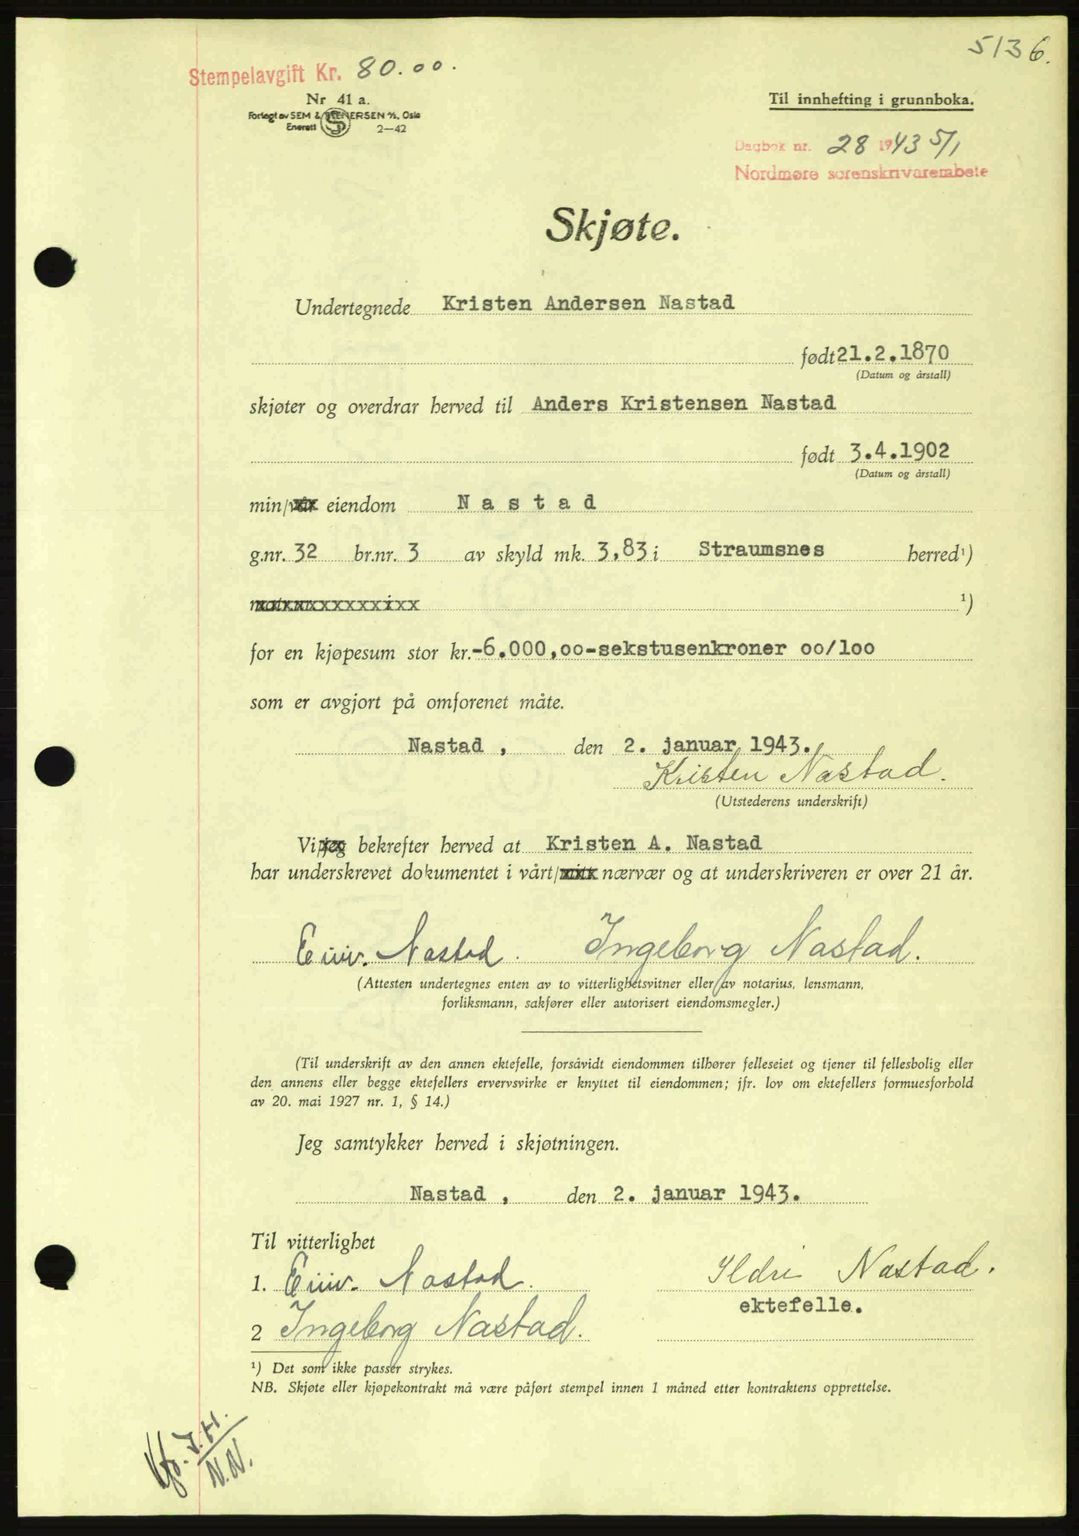 5136.
Stempelavgift Kr. 80.00.
Nr 41 a.
Forlagt av SEM & STENERSEN A/S, Oslo
Enerett 2-42
Til innhefting i grunnboka.
Dagbok nr. 28 1943 5/1
Nordmøre sorenskrivarembete
Skjøte.
Undertegnede Kristen Andersen Nastad
født 21.2.1870
(Datum og årstall)
skjøter og overdrar herved til Anders Kristensen Nastad
født 3.4.1902
(Datum og årstall)
min/vår eiendom Nastad
g.nr. 32 br.nr. 3 av skyld mk. 3,83 i Straumsnes herred¹)
¹)
for en kjøpesum stor kr.-6.000,oo-sekstusenkroner oo/loo
som er avgjort på omforenet måte.
Nastad, den 2. januar 1943.
Kristen Nastad.
(Utstederens underskrift)
Vi/jeg bekrefter herved at Kristen A. Nastad
har underskrevet dokumentet i vårt/mitt nærvær og at underskriveren er over 21 år.
Nastad. Ingeborg Nastad.
(Attesten undertegnes enten av to vitterlighetsvitner eller av notarius, lensmann,
forliksmann, sakfører eller autorisert eiendomsmegler.)
(Til underskrift av den annen ektefelle, forsåvidt eiendommen tilhører felleseiet og tjener til fellesbolig eller
den annens eller begge ektefellers ervervsvirke er knyttet til eiendommen; jfr. lov om ektefellers formuesforhold
av 20. mai 1927 nr. 1, § 14.)
Jeg samtykker herved i skjøtningen.
Nastad, den 2. januar 1943.
Til vitterlighet
1. Nastad. Ildri Nastad.
ektefelle.
2 Ingeborg Nastad.
¹) Det som ikke passer strykes.
NB. Skjøte eller kjøpekontrakt må være påført stempel innen 1 måned etter kontraktens opprettelse.
J.H.
N.N.